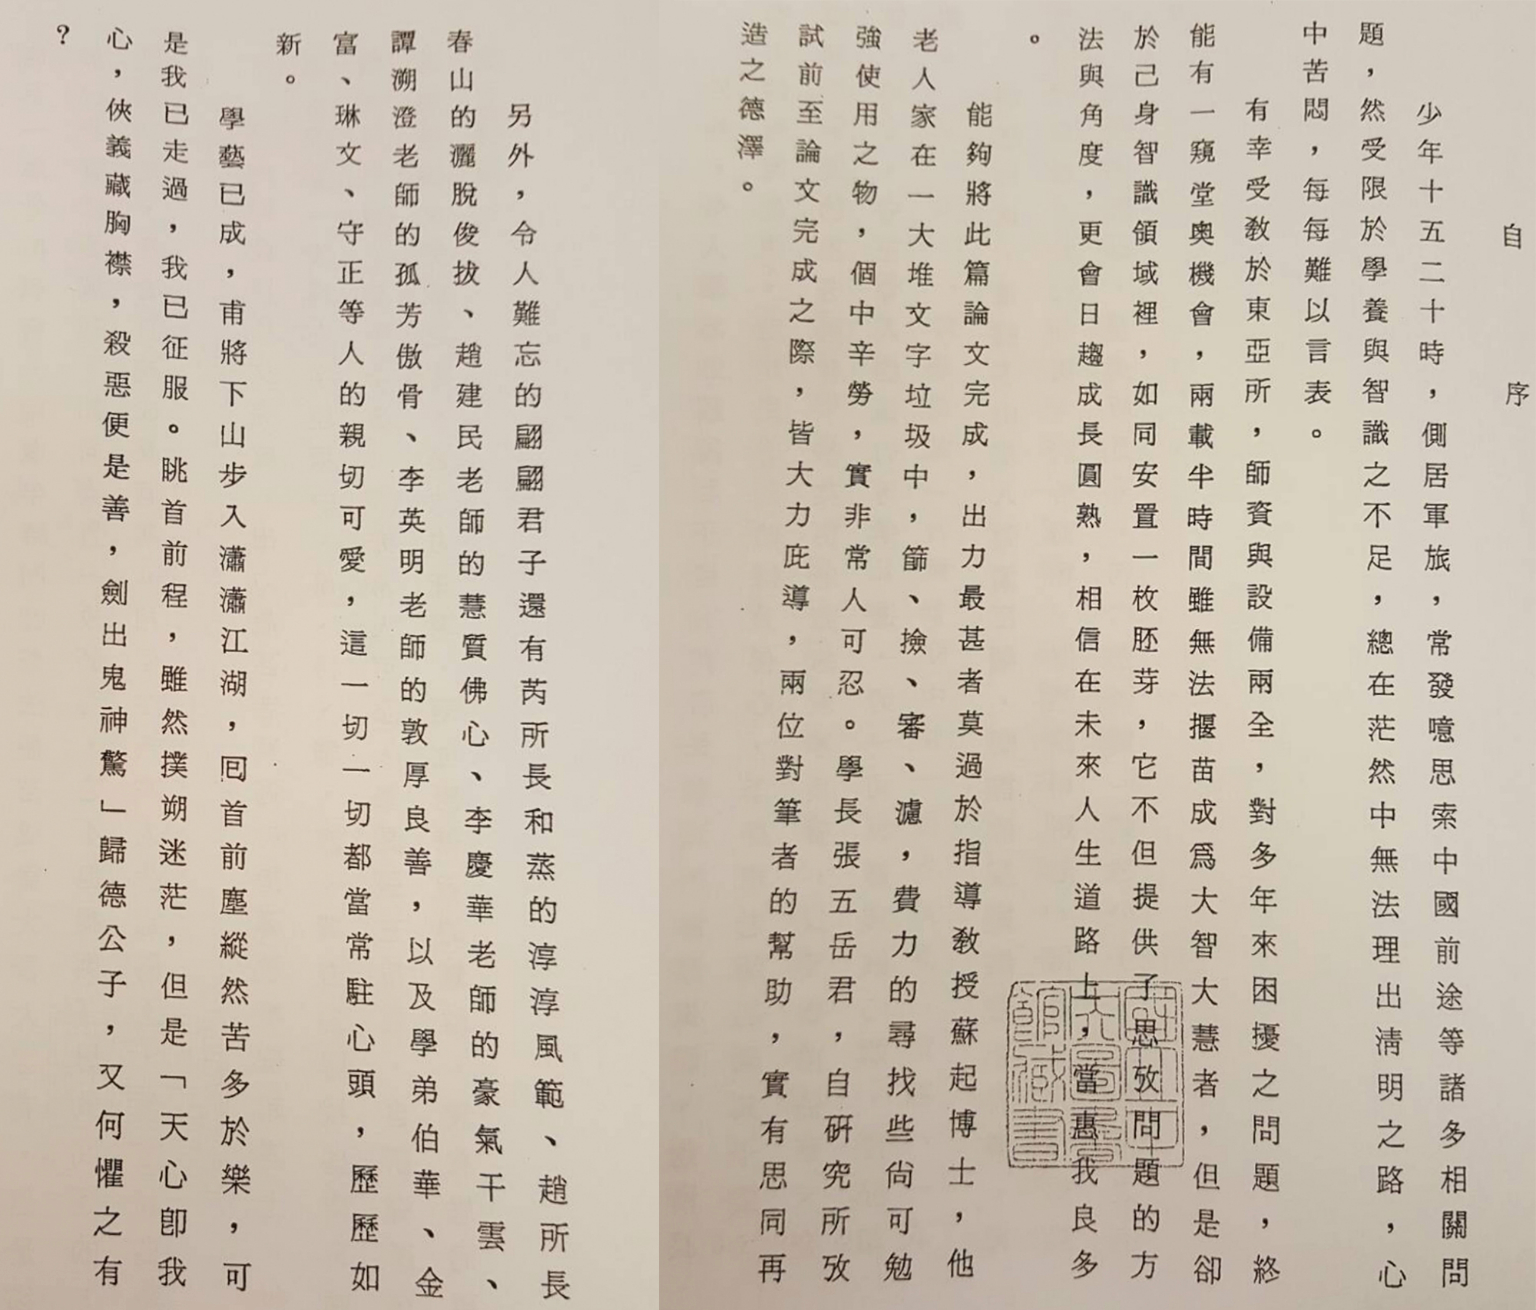 自序
少年十五二十時，側居軍旅，常發噫思索中國前途等諸多相關問
題，然受限於學養與智識之不足，總在茫然中無法理出清明之路，心
中苦悶，每每難以言表。
有幸受教於東亞所，師資與設備兩全，對多年來困擾之問題，終
能有一窺堂奧機會，兩載半時間雖無法揠苗成為大智大慧者，但是卻
於己身智識領域裡，如同安置一枚胚芽，它不但提供了思攷問題的方
法與角度，更會日趨成長圓熟，相信在未來人生道路上，當惠我良多
。
能夠將此篇論文完成，出力最甚者莫過於指導教授蘇起博士，他
老人家在一大堆文字垃圾中，篩、撿、審、濾，費力的尋找些尚可勉
強使用之物，個中辛勞，實非常人可忍。學長張五岳君，自研究所攷
試前至論文完成之際，皆大力庇導，兩位對筆者的幫助，實有思同再
造之德澤。
另外，令人難忘的翩翩君子還有芮所長和蒸的淳淳風範、趙所長
春山的灑脫俊拔、趙建民老師的慧質佛心、李慶華老師的豪氣干雲、
譚溯澄老師的孤芳傲骨、李英明老師的敦厚良善，以及學弟伯華、金
富、琳文、守正等人的親切可愛，這一切一切都當常駐心頭，歷歷如
新。
學藝已成，甫將下山步入瀟瀟江湖，回首前塵縱然苦多於樂，可
是我已走過，我已征服。眺首前程，雖然撲朔迷茫，但是「天心即我
心，俠義藏胸襟，殺惡便是善，劍出鬼神驚」歸德公子，又何懼之有
？
國立政治大學圖書館藏書